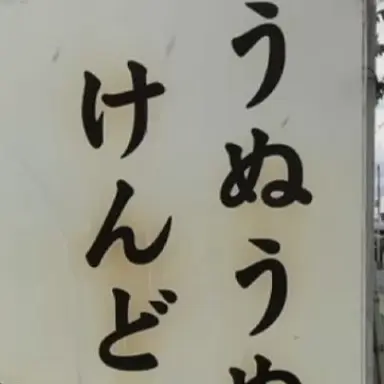 うぬうぬ
けんど